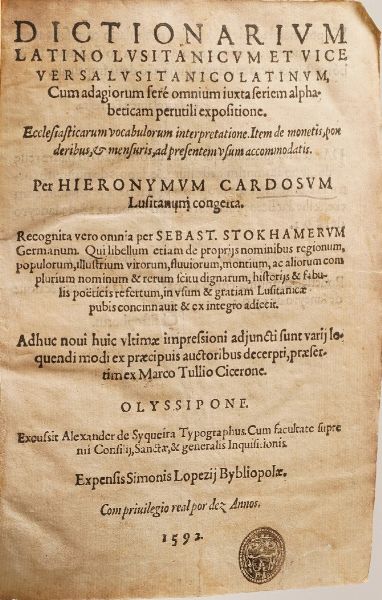 DICTIONARIVM
LATINO LVSITANICVM ET VICE
VERSA LVSITANICO LATINVM,
Cum adagiorum feré omnium iuxta seriem alpha-
beticam perutili expositione.
Ecclesiasticarum vocabulorum interpretatione. Item de monetis, pon
deribus, & mensuris, ad presentem vsum accommodatis.
Per HIERONYMVM CARDOSVM
Lusitanum congesta.
Recognita vero omnia per SEBAST. STOKHAMERVM
Germanum. Qui libellum etiam de proprijs nominibus regionum,
populorum, illustrium virorum, fluuiorum, montium, ac aliorum com
plurium nominum & rerum scitu dignarum, historijs & fabu-
lis poëticis refertum, in vsum & gratiam Lusitanicæ
pubis concinnauit & ex integro adiecit.
Adhuc noui huic vltimæ impressioni adjuncti sunt varij lo-
quendi modi ex præcipuis auctoribus decerpti, præser-
tim ex Marco Tullio Cicerone.
OLYSSIPONE.
Excussit Alexander de Syqueira Typographus. Cum facultate supre
mi Consilij, Sanctæ, & generalis Inquisitionis.
Expensis Simonis Lopezij Bybliopolæ.
Com priuilegio real por dez Annos.
1592